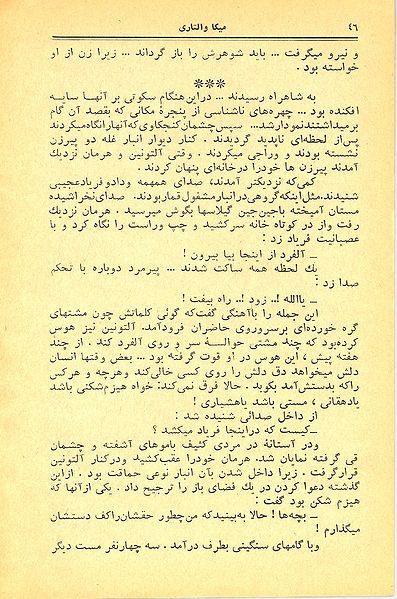 ۴۶
میکا والتاری
و نیرو میگرفت ... باید شوهرش را باز گرداند ... زیرا زن از او
خواسته بود .
***
به شاهراه رسیدند ... دراین‌هنگام سکوتی بر آنهـا سایـه
افکنده بود ... چهره‌های ناشناسی از پنجرهٔ مکانی که بقصد آن گام
برمیداشتند نمودارشد... سپس‌چشمان‌کنجکاوی‌که‌آنهارانگاه‌میکردند
پس‌از لحظه‌ای ناپدید گردیدند . کنار دیوار انبار غله دو پیرزن
نشسته بودند و وراجی میکردند . وقتی آلتونین و هرمان نزدیك
آمدند پیرزن ها خودرا درخانه‌ای پنهان کردند .
کمی‌که نزدیکتر آمدند، صدای همهمه ودادو فریادعجیبی
شنیدند،مثل‌اینکه‌گروهی‌درانبارمشغول‌قماربودند. صدای‌نخراشیده
مستان آمیخته باجین‌جین گیلاسها بگوش میرسید . هرمان نزدیك
رفت واز در کوتاه خانه سرکشید و چپ وراست را نگاه کرد و با
عصبانیت فریاد زد :
ــ آلفرد از اینجا بیا بیرون !
یك لحظه همه ساکت شدند ... پیرمرد دوباره با تحکم
صدا زد :
ــ یاالله !.. زود !.. راه بیفت !
این جمله را باآهنگی گفت‌که گوئی کلماتش چون مشتهای
گره خورده‌ای برسروروی حاضران فرودآمد. آلتونین نیز هوس
کرده‌بود که چند مشتی حوالـهٔ سر و روی آلفرد کند . از چند
هفته پیش ، این هوس در او قوت گرفته بود ... بعض وقتها انسان
دلش میخواهد دق دلش را روی کسی خالی‌کند وهرچه و هرکس
راکه بدستش‌آمد بکوبد . حالا فرق نمی‌کند: خواه هیزم‌شکنی باشد
یادهقانی ، مستی باشد یاهشیاری !
از داخل صدائی شنیده شد :
ــ کیست که دراینجا فریاد میکشد ؟
ودر آستانهٔ در مردی کثیف باموهای آشفته و چشمان
قی گرفته نمایان شد. هرمان خودرا عقب‌کشید ودرکنار آلتونین
قرارگرفت . زیرا داخل شدن بآن انبار نوعی حماقت بود . ازاین
گذشته دعوا کردن در یك فضای باز را ترجیح داد . یکی ازآنها که
هیزم شکن بود گفت :
ــ بچه‌ها ! حالا به‌بینیدکه من‌چطور حقشان‌راکف دستشان
میگذارم !
وبا گامهای سنگینی بطرف درآمد . سه چهارنفر مست دیگر